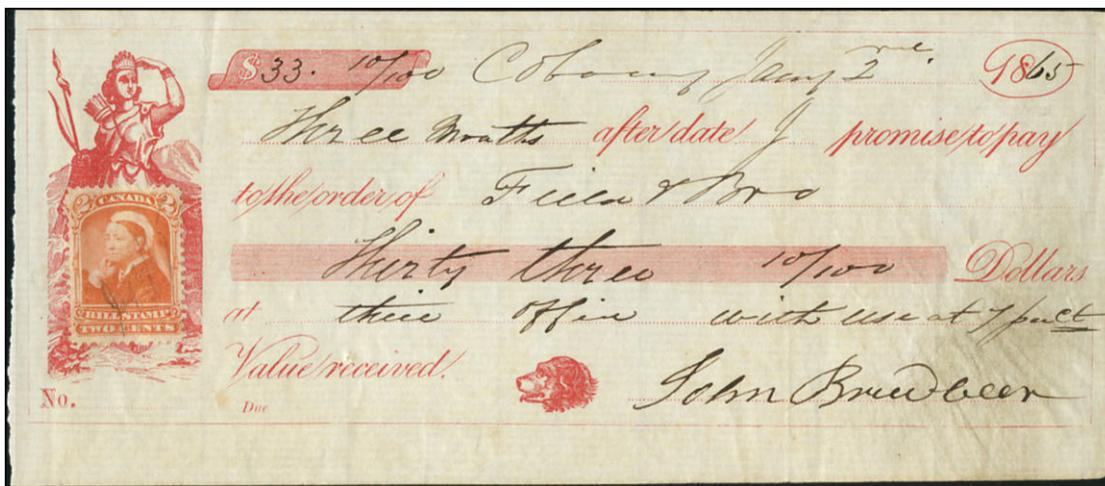 $33. 10/100 Cobourg Jany 2nd. 1865
Three Months after date I promise to pay
to the order of Field & Bro
Thirty three 10/100 Dollars
at their office with use at 7 pr ct
Value received.
John
No.
Due
CANADA
2 2
BILL STAMP
TWO CENTS